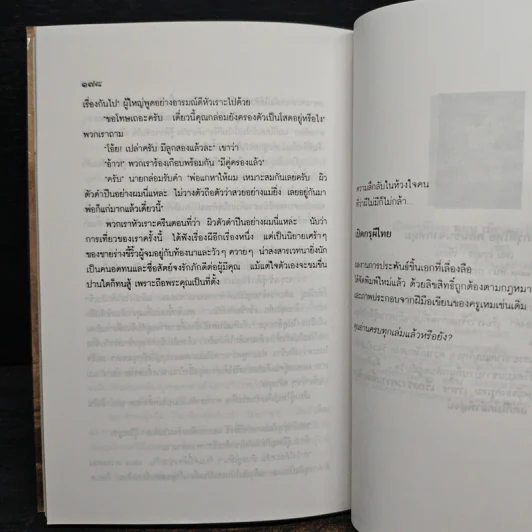 ๑๗๘
เรื่องกันไป" ผู้ใหญ่พูดอย่างอารมณ์ดีหัวเราะไปด้วย
"ขอโทษเถอะครับ เดี๋ยวนี้คุณกล่อมยังครองตัวเป็นโสดอยู่หรือไง"
พวกเราถาม
"โอ๊ย! เปล่าครับ มีลูกสองแล้วล่ะ" เขาว่า
"อ้าว!" พวกเราร้องเกือบพร้อมกัน "มีคู่ครองแล้ว"
"ครับ" นายกล่อมรับคำ "พ่อแกหาให้ผม เหมาะสมกันเลยครับ ผิว
ตัวดำปืนอย่างผมนี่แหละ ไม่วางตัวถือตัวว่าสวยอย่างแม่ยิ่ง เลยอยู่กันมา
พ่อก็แก่มากแล้วเดี๋ยวนี้"
พวกเราหัวเราะครืนตอนที่ว่า ผิวตัวดำปืนอย่างผมนี่แหละ นับว่า
การเที่ยวของเราครั้งนี้ ได้ฟังเรื่องผีอีกเรื่องหนึ่ง แต่เป็นนิยายเศร้าๆ
ของชายร่างขี้ริ้วผู้จมอยู่กับท้องนาและวัวๆ ควายๆ น่าสงสารเวทนายิ่งนัก
เป็นคนอดทนและซื่อสัตย์จงรักภักดีต่อผู้มีคุณ แม้แต่ใจตัวเองจะขมขื่น
ปานใดก็ทนสู้ เพราะถือพระคุณเป็นที่ตั้ง
ความลึกลับในห้วงใจคน
ที่ว่าผีไม่มีก็ไม่กล้า...
เปิดกรุผีไทย
ผลงานการประพันธ์ชิ้นเอกที่เลื่องลือ
ได้จัดพิมพ์ใหม่แล้ว ด้วยลิขสิทธิ์ถูกต้องตามกฎหมา
และภาพประกอบจากฝีมือเขียนของครูเหมเช่นเดิม
คุณอ่านครบทุกเล่มแล้วหรือยัง?